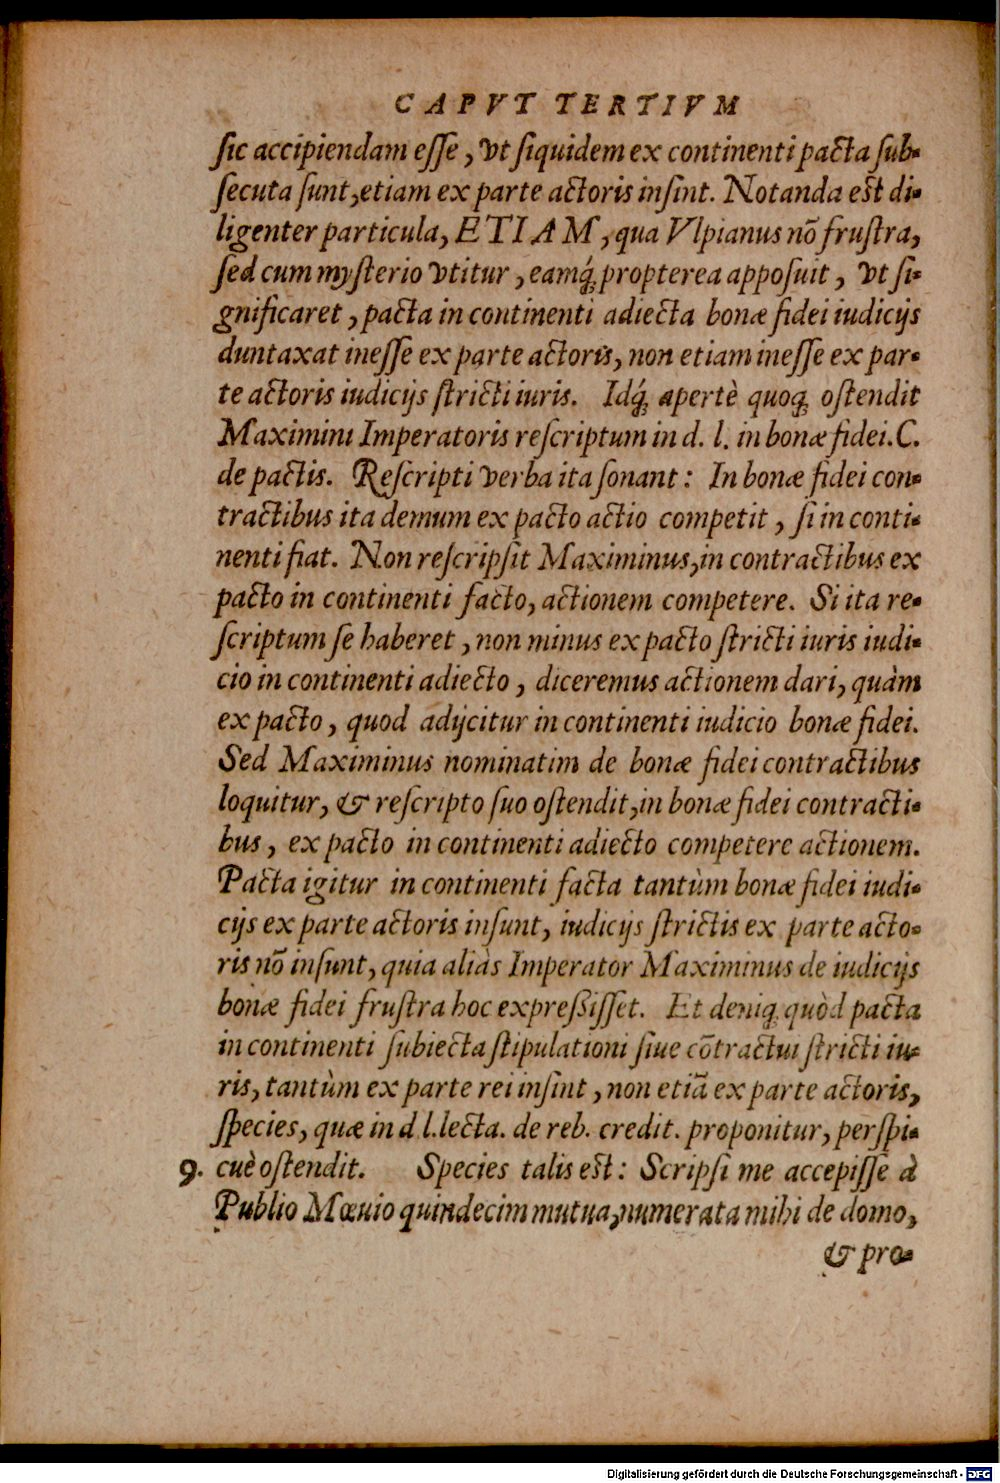 CAPVT TERTIVM
sic accipiendam esse, vt siquidem ex continenti pacta sub-
secuta sunt, etiam ex parte actoris insint. Notanda est di-
ligenter particula, ETIAM, qua Vlpianus nō frustra,
sed cum mysterio vtitur, eamq́; propterea apposuit, vt si-
gnificaret, pacta in continenti adiecta bonæ fidei iudicijs
duntaxat inesse ex parte actoris, non etiam inesse ex par-
te actoris iudicijs stricti iuris. Idq́; apertè quoq; ostendit
Maximini Imperatoris rescriptum in d. l. in bonæ fidei. C.
de pactis. Rescripti verba ita sonant: In bonæ fidei con-
tractibus ita demum ex pacto actio competit, si in conti-
nenti fiat. Non rescripsit Maximinus, in contractibus ex
pacto in continenti facto, actionem competere. Si ita re-
scriptum se haberet, non minus ex pacto stricti iuris iudi-
cio in continenti adiecto, diceremus actionem dari, quàm
ex pacto, quod adijcitur in continenti iudicio bonæ fidei.
Sed Maximinus nominatim de bonæ fidei contractibus
loquitur, & rescripto suo ostendit, in bonæ fidei contracti-
bus, ex pacto in continenti adiecto competere actionem.
Pacta igitur in continenti facta tantùm bonæ fidei iudi-
cijs ex parte actoris insunt, iudicijs strictis ex parte acto-
ris nō insunt, quia aliàs Imperator Maximinus de iudicijs
bonæ fidei frustra hoc expreßisset. Et deniq; quòd pacta
in continenti subiecta stipulationi siue cōtractui stricti iu-
ris, tantùm ex parte rei insint, non etiā ex parte actoris,
species, quæ in d. l. lecta. de reb. credit. proponitur, perspi-
9. cuè ostendit. Species talis est: Scripsi me accepisse à
Publio Mœuio quindecim mutua, numerata mihi de domo,
& pro-
Digitalisierung gefördert durch die Deutsche Forschungsgemeinschaft - DFG